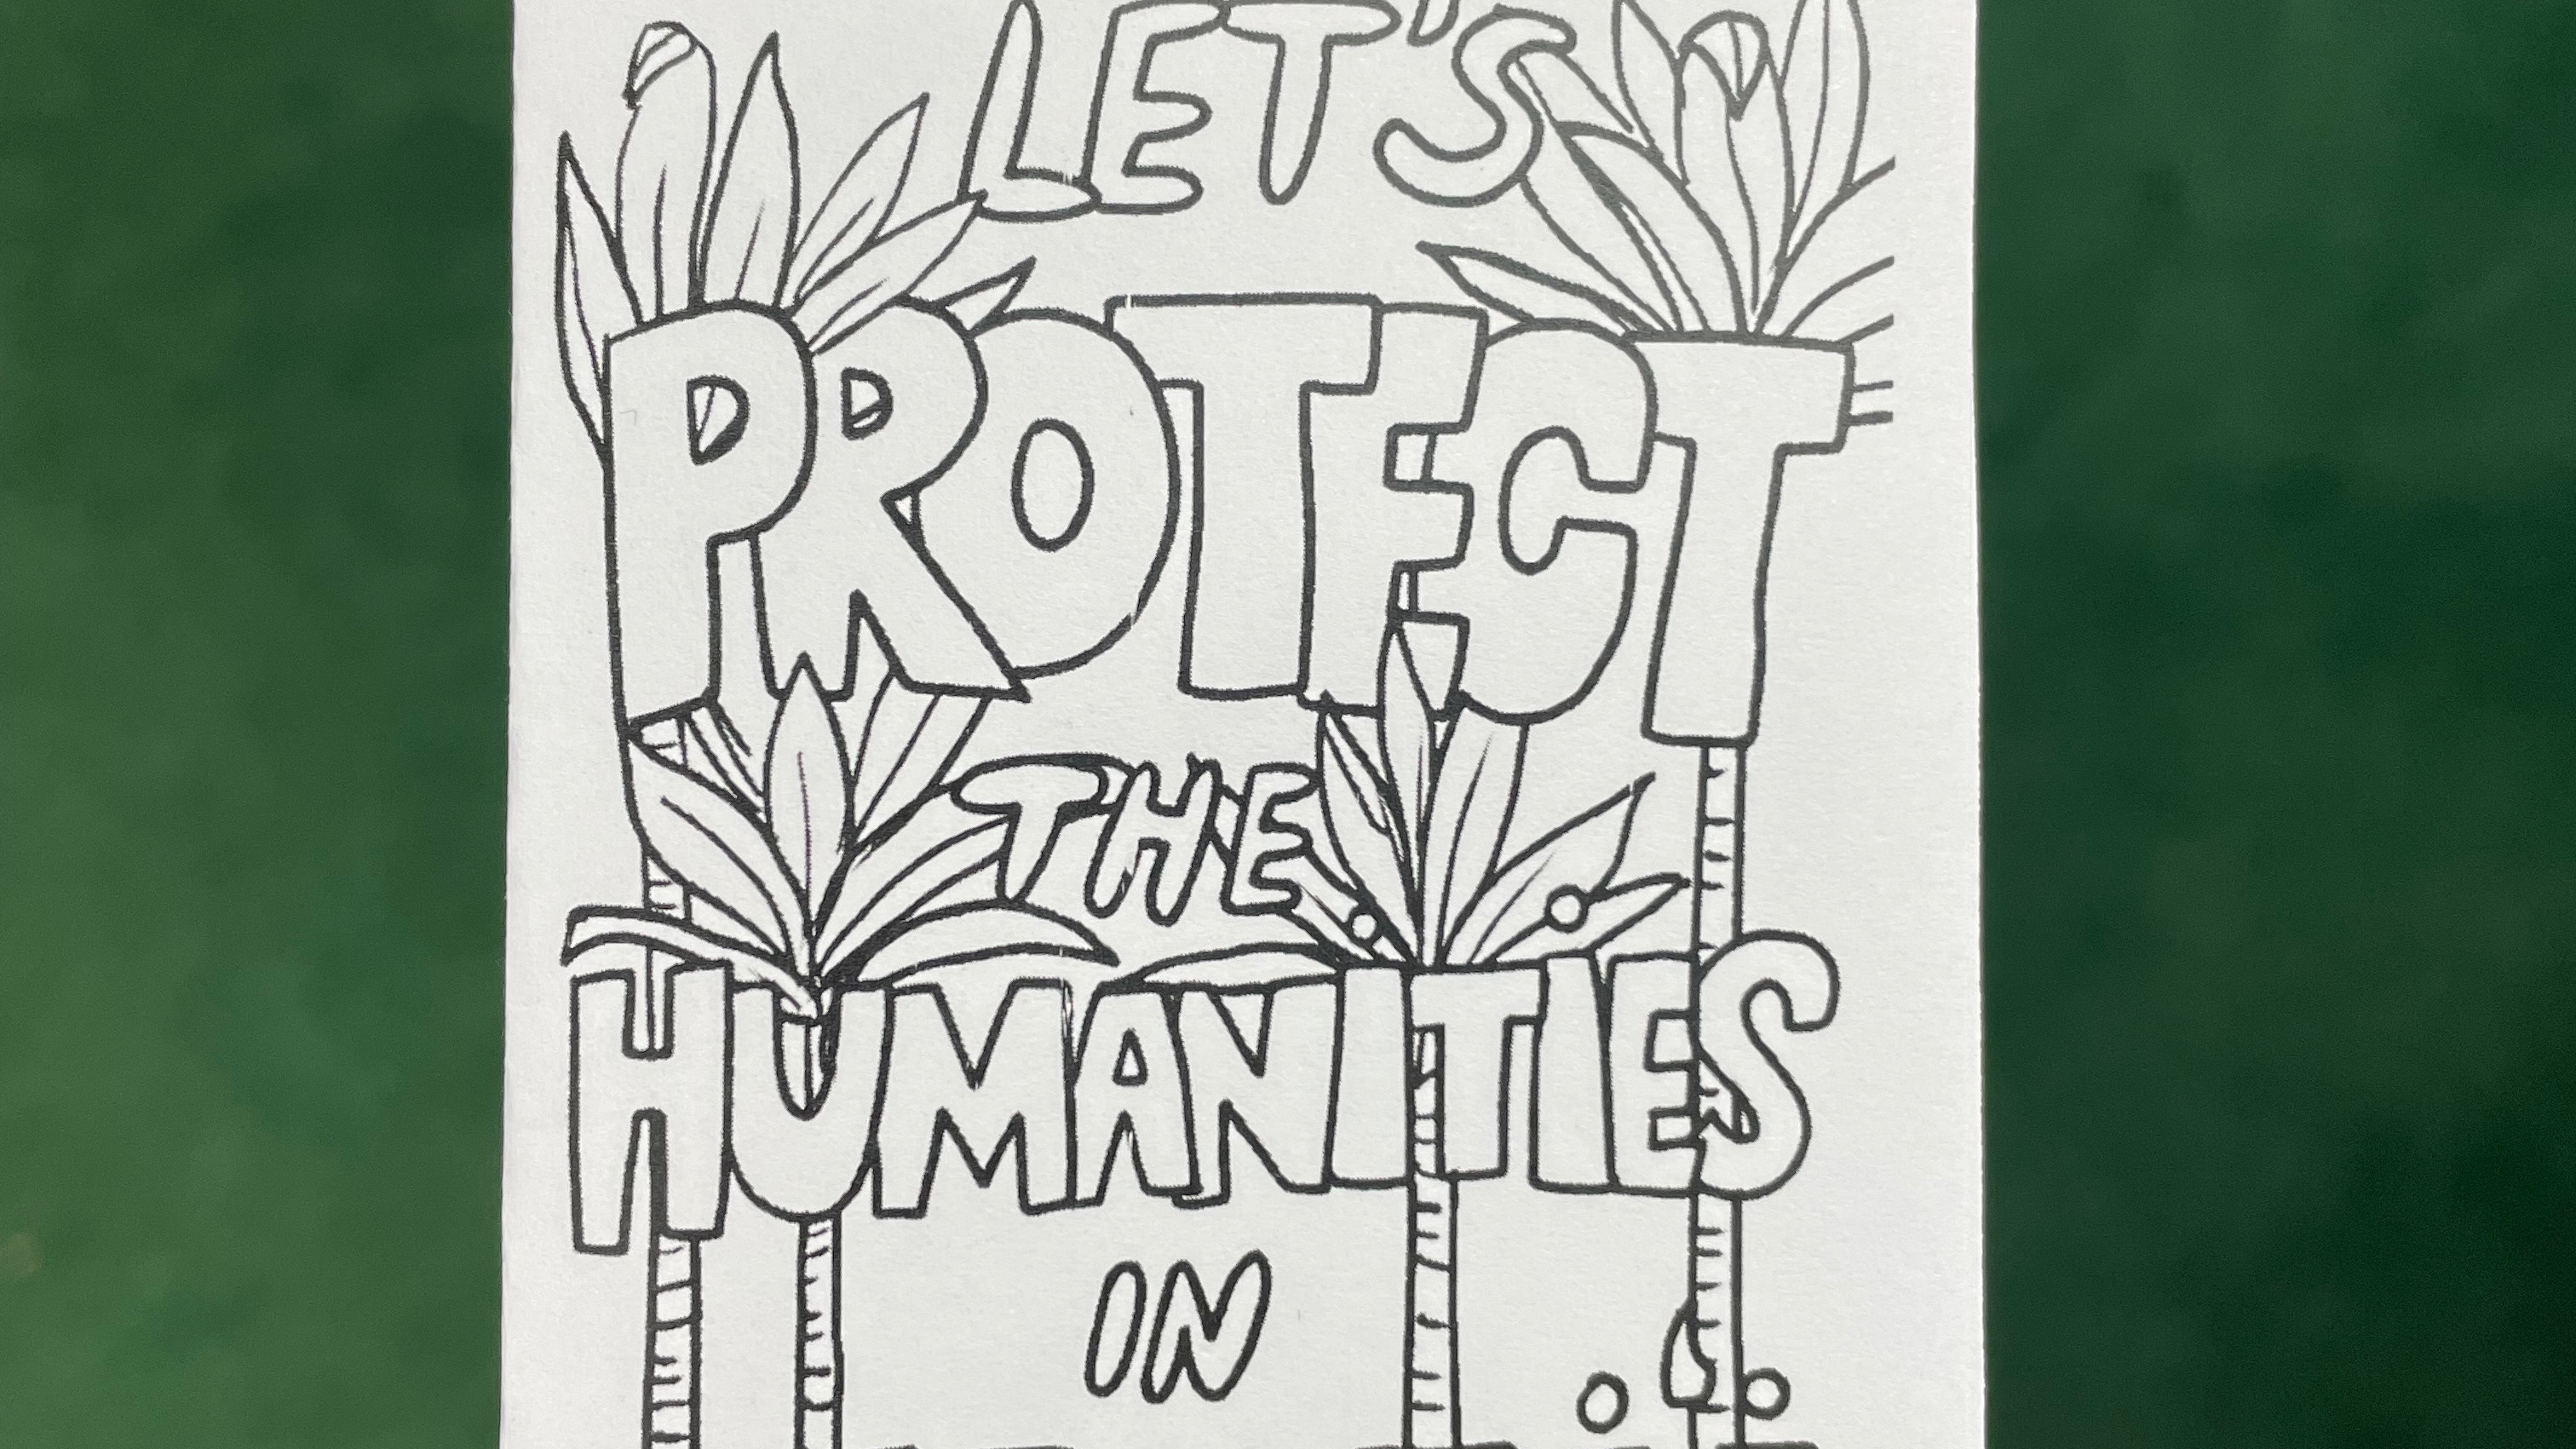 LET'S
PROTECT
THE
HUMANITIES
IN